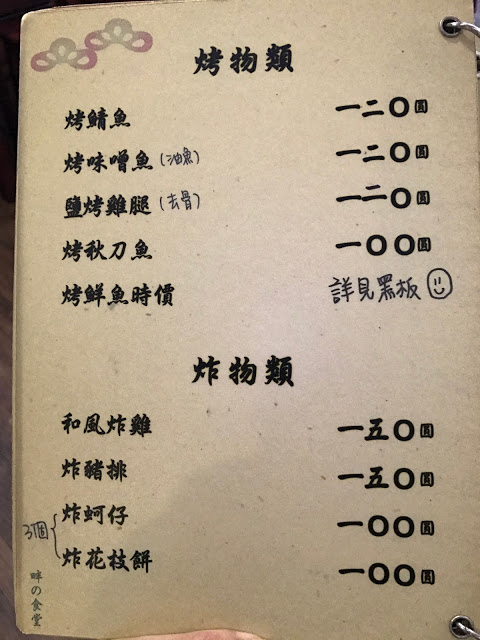 烤物類
烤鯖魚 一二〇圓
烤味噌魚(油魚) 一二〇圓
鹽烤雞腿(去骨) 一二〇圓
烤秋刀魚 一〇〇圓
烤鮮魚時價 詳見黑板
炸物類
和風炸雞 一五〇圓
炸豬排 一五〇圓
3個
炸蚵仔 一〇〇圓
炸花枝餅 一〇〇圓
畔の食堂